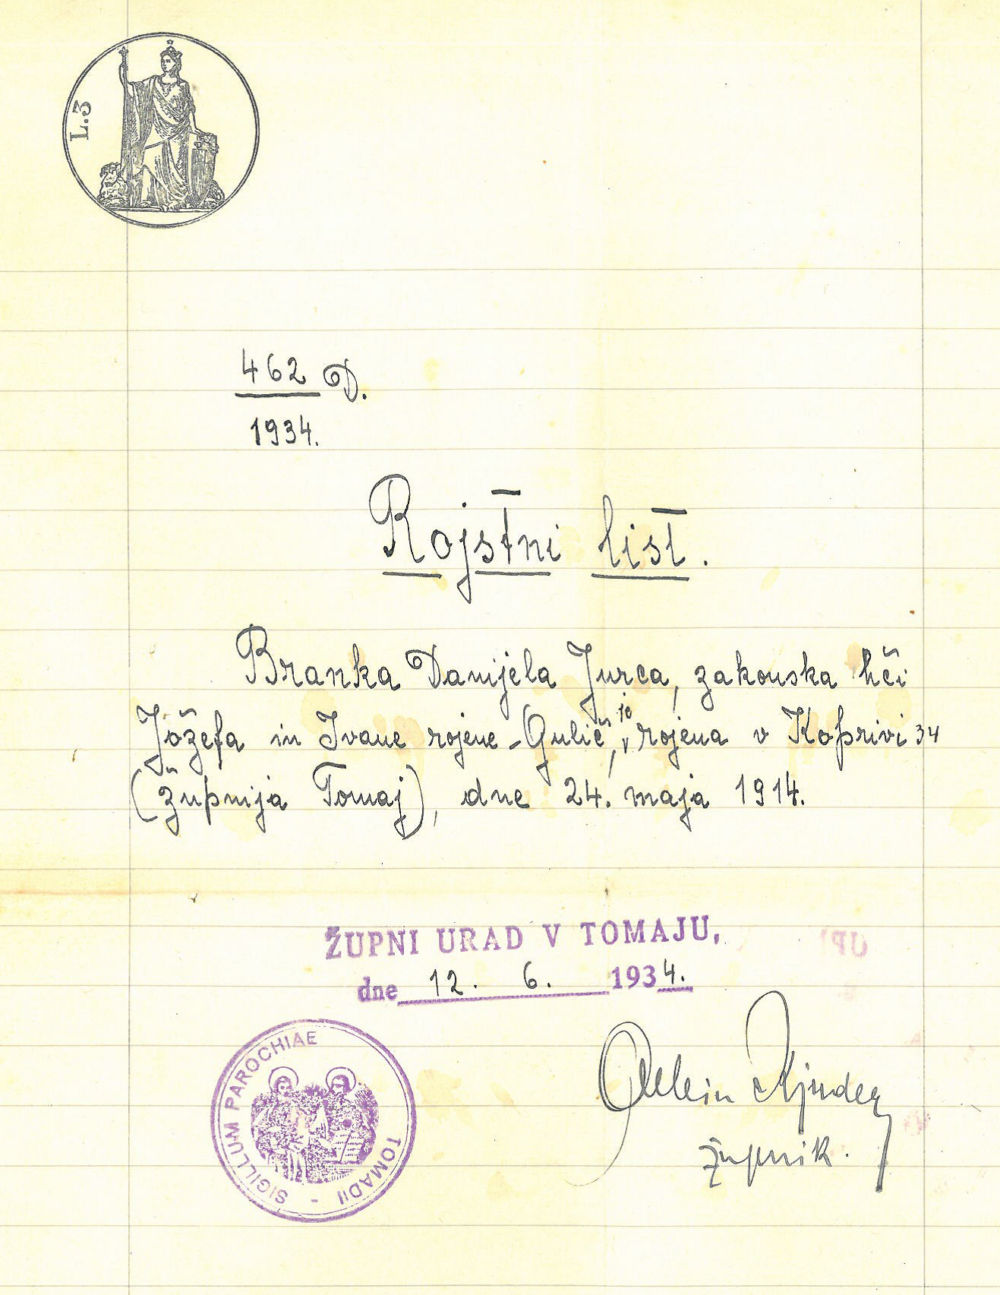 L.3
462 D.
1934.
Rojstni list.
Branka Danijela Jurca, zakonska hči
Jožefa in Ivane rojene Gulič, je rojena v Koprivi 34
(župnija Tomaj), dne 24. maja 1914.
ŽUPNI URAD V TOMAJU,
dne 12. 6. 1934.
SIGILLUM PAROCHIAE TOMADII -
Albin Kjuder
župnik.